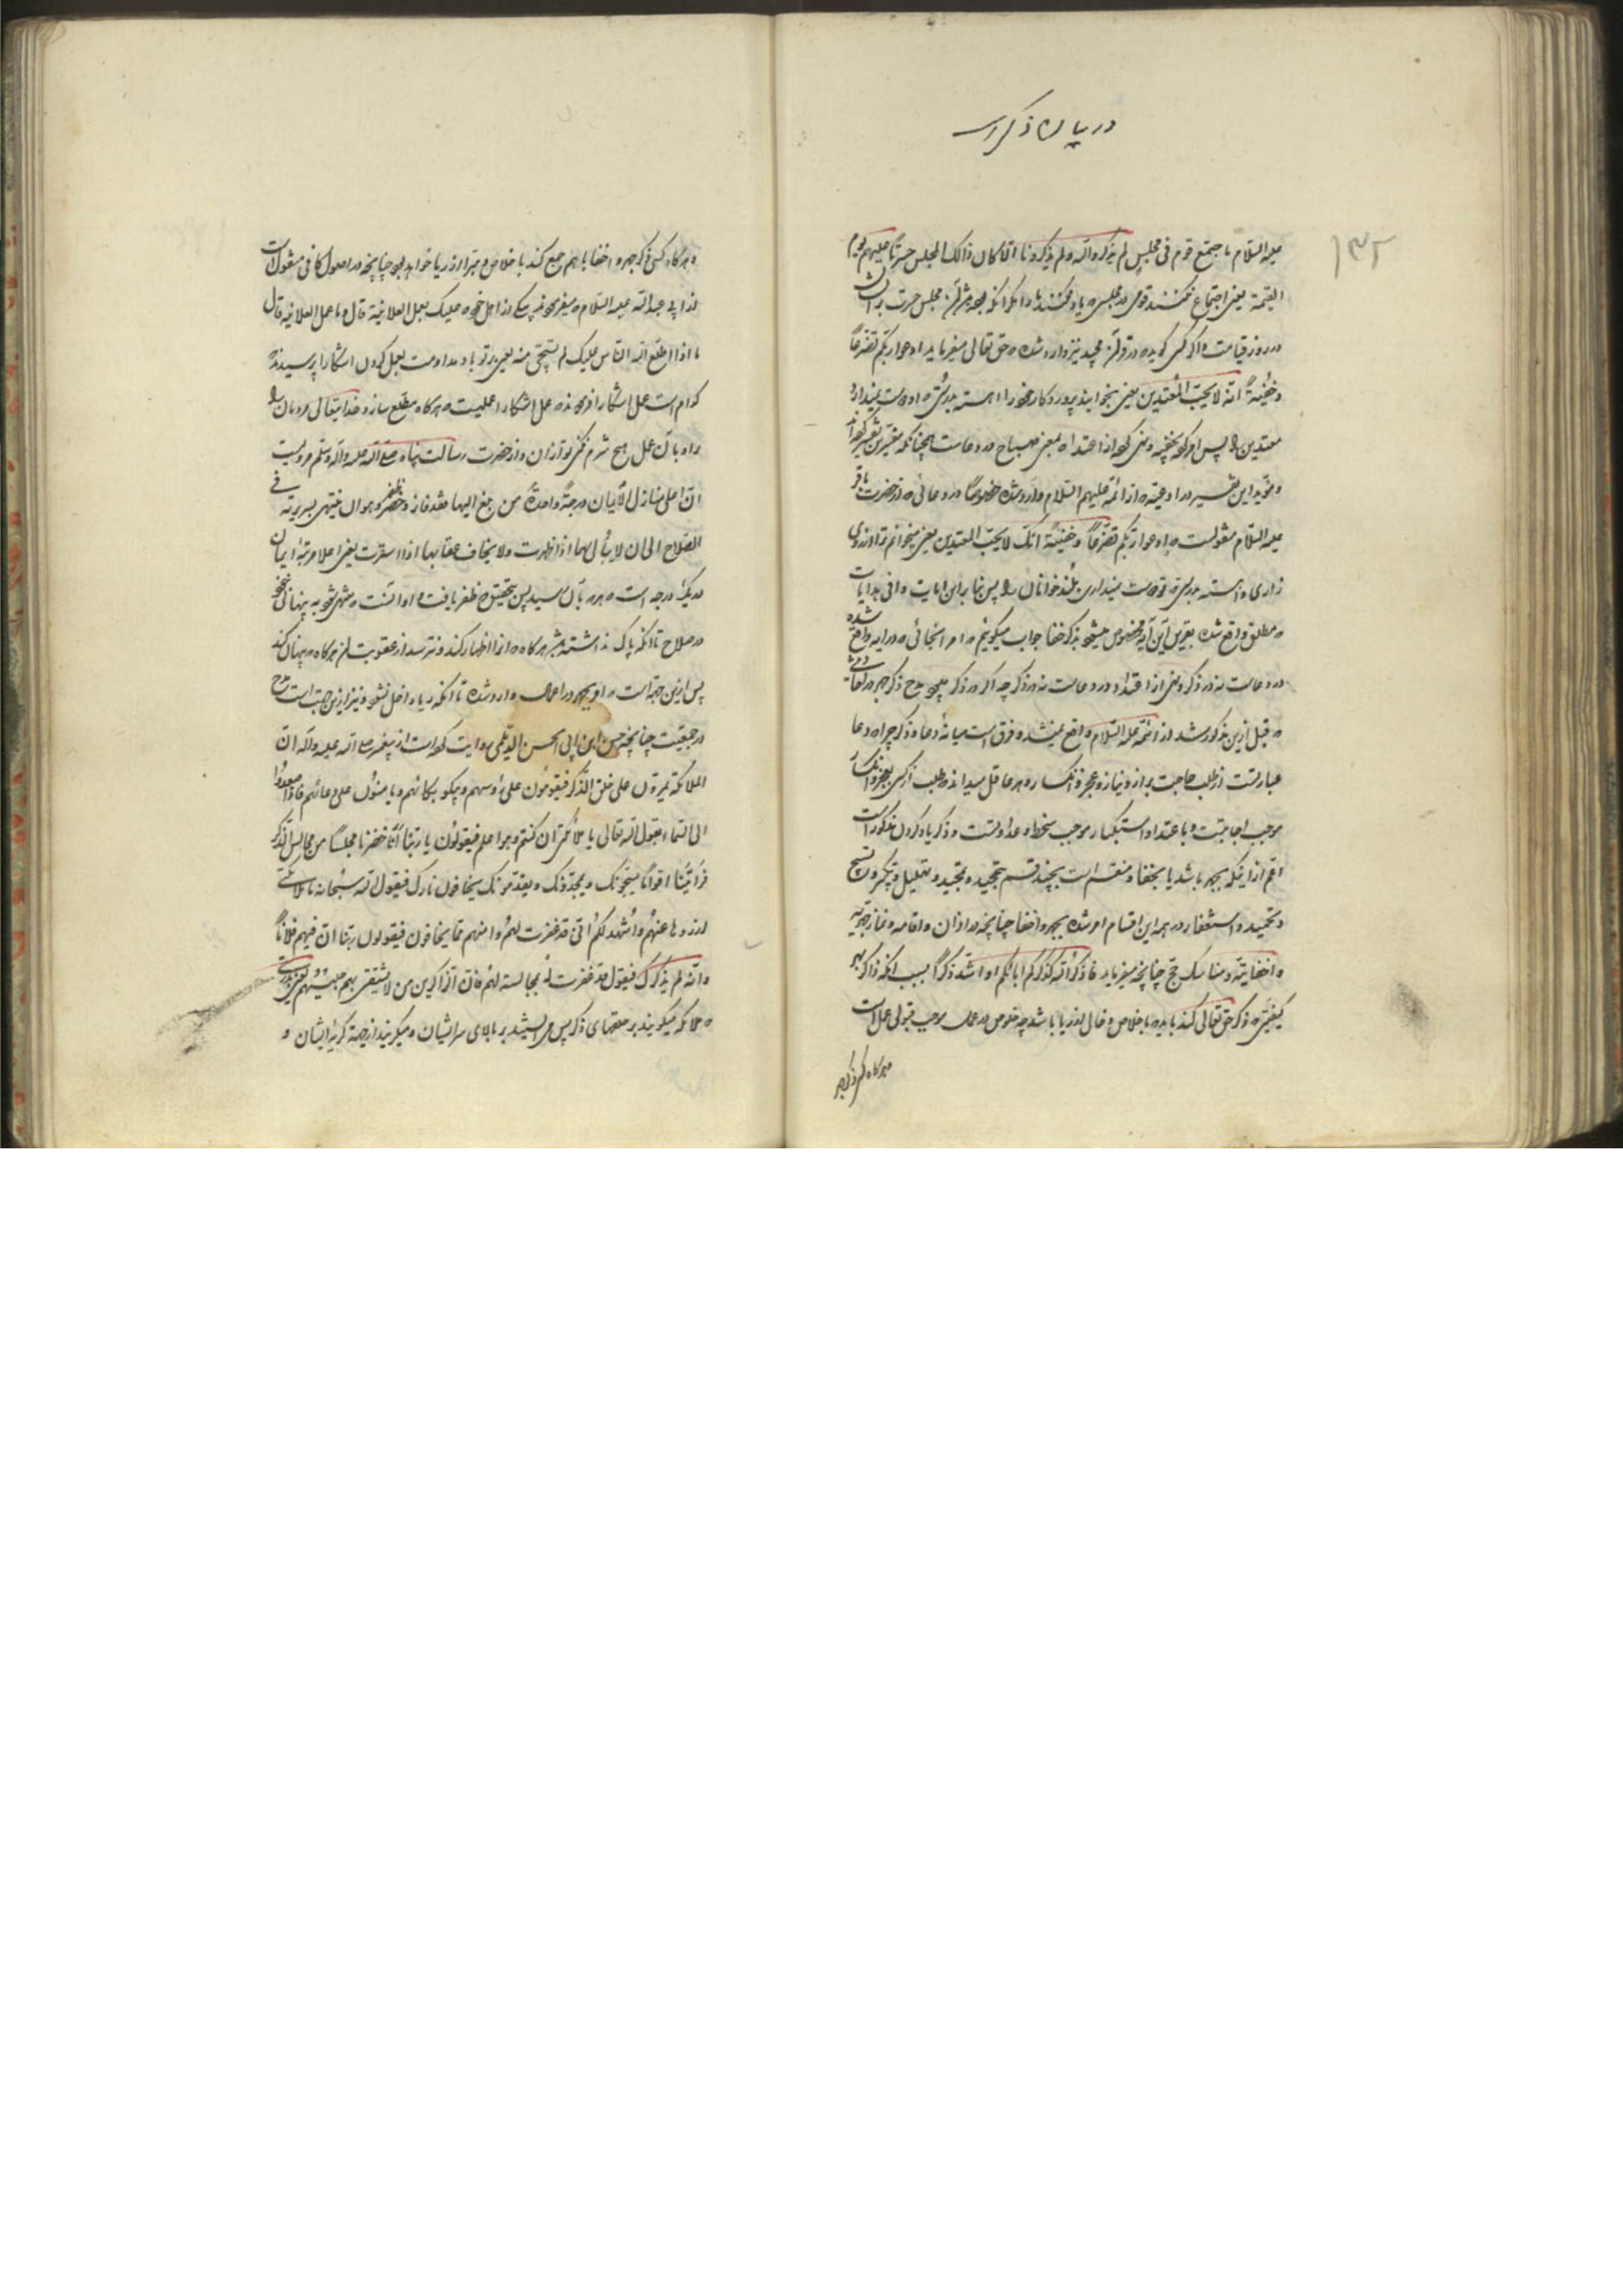 در بیان ذکر است
۱۳۲
علیه السلام ما اجتمع قوم فی مجلس لم یذکروا الله ولم یذکرونا الا کان ذالک المجلس حسرتاً علیهم یوم
القیمة یعنی اجتماع نمیکنند قومی در مجلسی که یاد نمیکنند ما را مگر آنکه بوده باشد آن مجلس حسرت بر ایشان
در روز قیامت و اگر کسی گوید در قرآن مجید نیز وارد شده که حق تعالی میفرماید ادعوا ربکم تضرعاً
وخفیةً انه لا یحب المعتدین یعنی بخوانید پروردگار خود را آهسته بدرستی که او دوست نمیدارد
معتدین را پس امر کرده بخفیه و نهی کرده از اعتداء بمعنی صیاح در دعاست چنانکه مفسرین تفسیر کرده‌اند
و مؤید این تفسیر در ادعیه که از ائمه علیهم السلام وارد شده خصوصاً در دعائی که از حضرت باقر
علیه السلام منقولست که ادعوا ربکم تضرعاً وخفیةً انک لا یحب المعتدین یعنی میخوانم ترا از روی
زاری و آهسته بدرستی که تو دوست نمیداری بلند خوانان را پس بنابراین آیات وافی هدایات
که مطلق واقع شده بقرینه این آیه مخصوص میشود بذکر خفا جواب میگوئیم که امر اینجائی که در آیه واقع شده
در دعاست نه در ذکر و نهی از اعتداء در دعاست نه در ذکر چه اگر در ذکر میبود مدح ذکر جهر در احادیثی
که قبل ازین مذکور شد از ائمه علیه السلام واقع نمیشد و فرق است میانه دعا و ذکر چرا که دعا
عبارتست از طلب حاجت براز و نیاز و عجز و انکسار و هر عاقل میداند که طلب از کسی بعجز و انکسار
موجب اجابتست و باعتداء و استکبار موجب سخط و عداوتست و ذکر یاد کردن مذکور است
اعم از اینکه بجهر باشد یا بخفا و منقسم است بچند قسم بتحمید و تمجید و تهلیل و تکبیر و تسبیح
و تحمید و استغفار در همه این اقسام امر شده بجهر و اخفا چنانچه در اذان و اقامه و نماز جهریه
و اخفاتیه و مناسک حج چنانچه میفرماید فاذکروا الله کذکرکم اباءکم او اشد ذکراً بسبب آنکه ذاکر بهر
کیفیتی که ذکر حق تعالی کند باید که باخلاص و خالی از ریا باشد چه خلوص در عمل موجب قبولی عمل است
هرگاه کسی ذکر جهر
و هرگاه کسی ذکر جهر و اخفا با هم جمع کند باخلاص و مبرا از ریا خواهد بود چنانچه در اصول کافی منقول است
از ابی عبدالله علیه السلام که میفرموده به یکی از اهل خود علیک بعمل العلانیة قال و ما عمل العلانیه قال
ما اذا اطلع الله الناس علیک لم تستحی منه یعنی بر تو باد مداومت بعمل کردن آشکارا پرسیدند
کدام است عمل آشکارا فرمودند عمل آشکارا عملیست که هرگاه مطلع سازد خدایتعالی مردمان را
راه بآن عمل هیچ شرم نکنی تو از آن و از حضرت رسالت پناه صلی الله علیه وآله وسلم مرویست
ان اعلی منازل الایمان درجةً واحدةً من بلغ الیها فقد فاز و ظفر وهو ان ینتهی بسریرته فی
الصلاح الی ان لا یبالی لها اذا ظهرت ولا یخاف عقابها اذا استترت یعنی اعلا مرتبهٔ ایمان
در یک درجه است که هر که بآن رسید پس بتحقیق که ظفر یافت و او آنست که منتهی شود به پنهانی خود
در صلاح تا آنکه باک نداشته باشد هرگاه که او را اظهار کند و نترسد از عقوبت آن هرگاه که پنهان کند
پس ازین جهة است که او بجهر در اعمال وارد شده تا آنکه ریا داخل نشود و نیز ازین جهت است مدح
در جمعیت چنانچه حسن ابن ابی الحسن الدیلمی روایت کرده است از پیغمبر صلی الله علیه وآله ان
الملائکة یمرون علی حلق الذکر فیقومون علی رؤسهم ویبکون ببکائهم ویؤمنون علی دعائهم فاذا صعدوا
الی السماء یقول الله تعالی یا ملائکتی أین کنتم وهو اعلم فیقولون یا ربنا انا حضرنا مجلسًا من مجالس الذکر
فرأیتنا اقواماً یسبحونک ویمجدونک ویقدسونک یخافون نارک فیقول الله سبحانه یا ملائکتی
ازوواها عنهم واشهدکم انی قد غفرت لهم وامنهم مما یخافون فیقولون ربنا ان فیهم فلاناً
وانه لم یذکرک فیقول قد غفرت له بمجالسته لهم فان الذاکرین من لا یشقی بهم جلیسهم یعنی بدرستی
که ملائکه میگذرند بر حلقهای ذکر پس می ایستند بر بالای سر ایشان و میگریند از جهة گریهٔ ایشان و